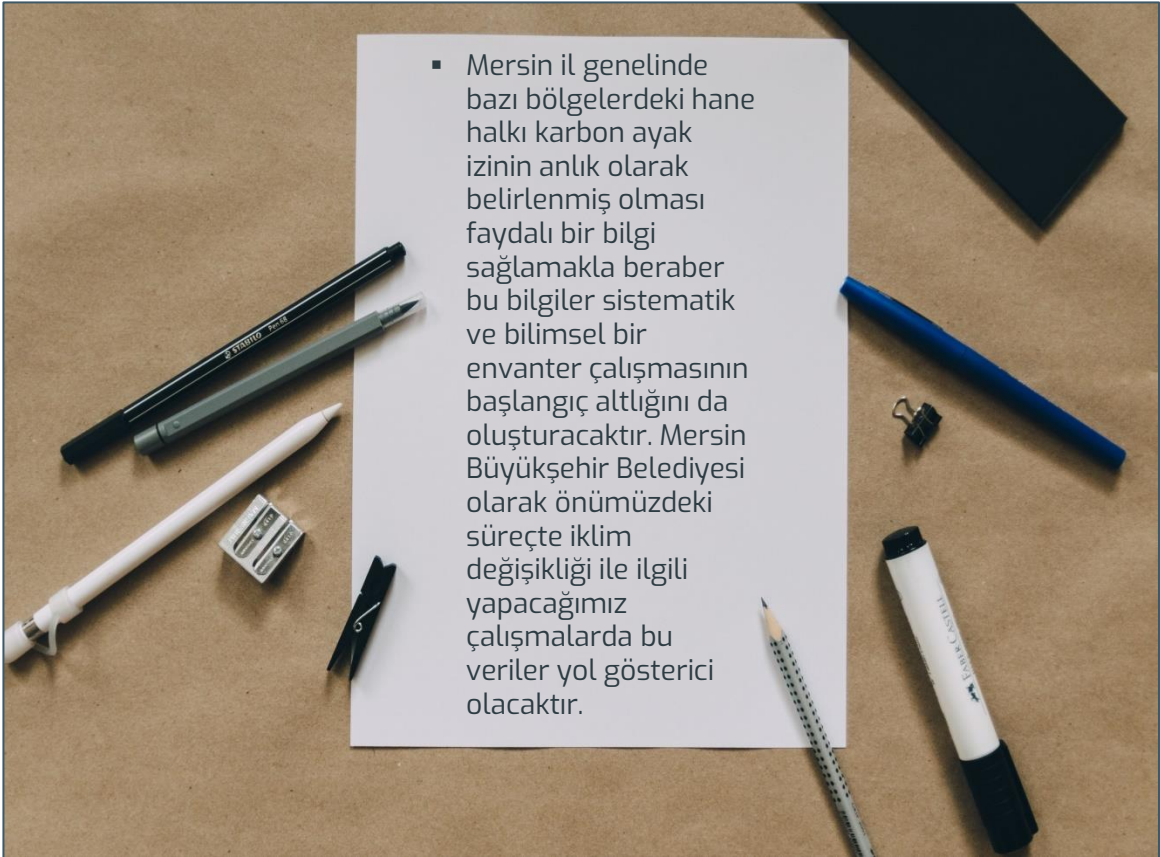 ▪ Mersin il genelinde
bazı bölgelerdeki hane
halkı karbon ayak
izinin anlık olarak
belirlenmiş olması
faydalı bir bilgi
sağlamakla beraber
bu bilgiler sistematik
ve bilimsel bir
envanter çalışmasının
başlangıç altlığını da
oluşturacaktır. Mersin
Büyükşehir Belediyesi
olarak önümüzdeki
süreçte iklim
değişikliği ile ilgili
yapacağımız
çalışmalarda bu
veriler yol gösterici
olacaktır.
STABILO Pen 68
FABER-CASTELL